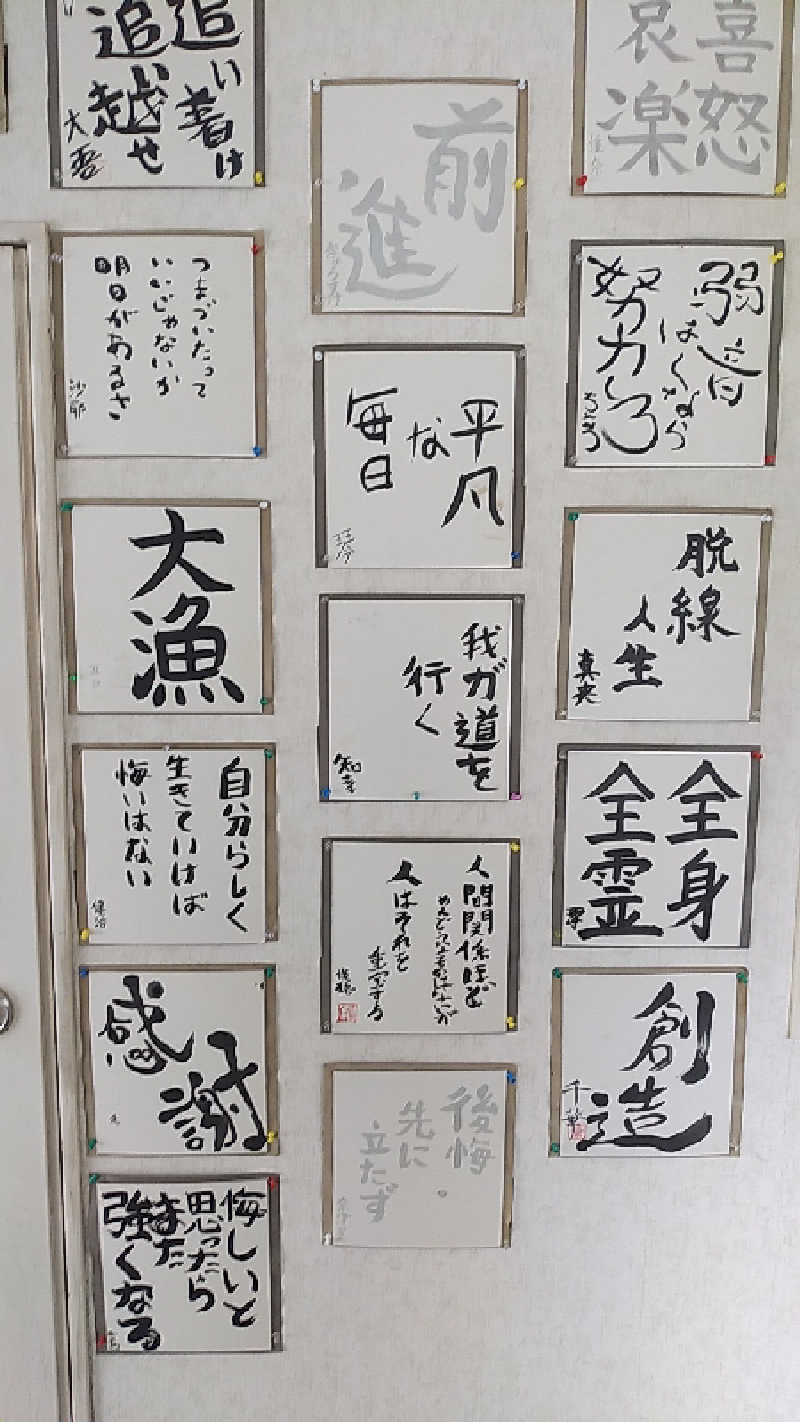 追い着け
追い越せ
大吾
つまづいたって
いいじゃないか
明日があるさ
沙耶
大漁
自分らしく
生きていけば
悔いはない
健治
感謝
悔しいと
思ったら
まだ
強くなる
前
進
平凡
な
毎日
我が道を
行く
知幸
人間関係ほど
人はそれを
重宝する
後悔
先に
立たず
喜怒
哀楽
弱音
はくなら
努力しろ
脱線
人生
真央
全身
全霊
創
造
千華